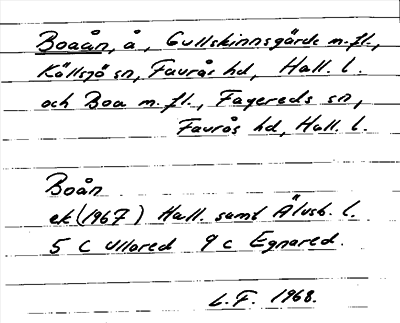 Boaån, å, Gullskinnsgärde m.fl.,
Källsjö sn, Faurås hd, Hall. l.
och Boa m.fl., Fagereds sn,
Faurås hd, Hall. l.
Boån
ek (1967) Hall. samt Älvsb. l.
5 C Ullared 9 c Egnared.
L.F. 1968.